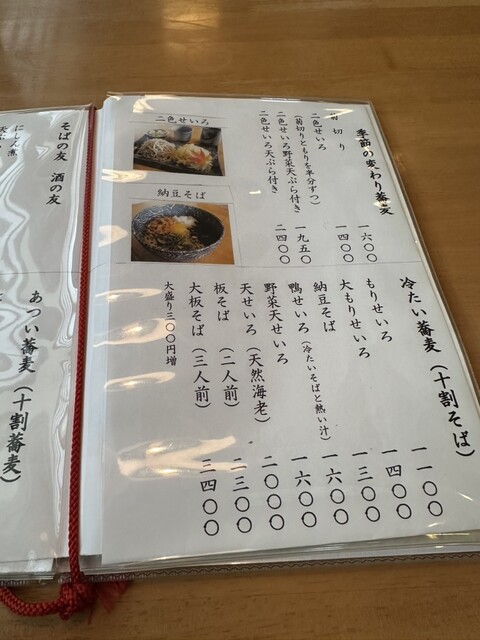 季節の変わり蕎麦
切り 一六〇〇
二色せいろ 一四〇〇
(菊切りともりを半分ずつ)
二色せいろ野菜天ぷら付き 一九五〇
二色せいろ天ぷら付き 二四〇〇
二色せいろ
納豆そば
冷たい蕎麦(十割そば)
もりせいろ 一一〇〇
大もりせいろ 一四〇〇
納豆そば 一三〇〇
鴨せいろ(冷たいそばと熱い汁) 一六〇〇
野菜天せいろ 一六〇〇
天せいろ(天然海老) 二〇〇〇
板そば(二人前) 二三〇〇
大板そば(三人前) 三四〇〇
大盛り三〇〇円増
そばの友 酒の友
にしん煮
あつい蕎麦(十割蕎麦)